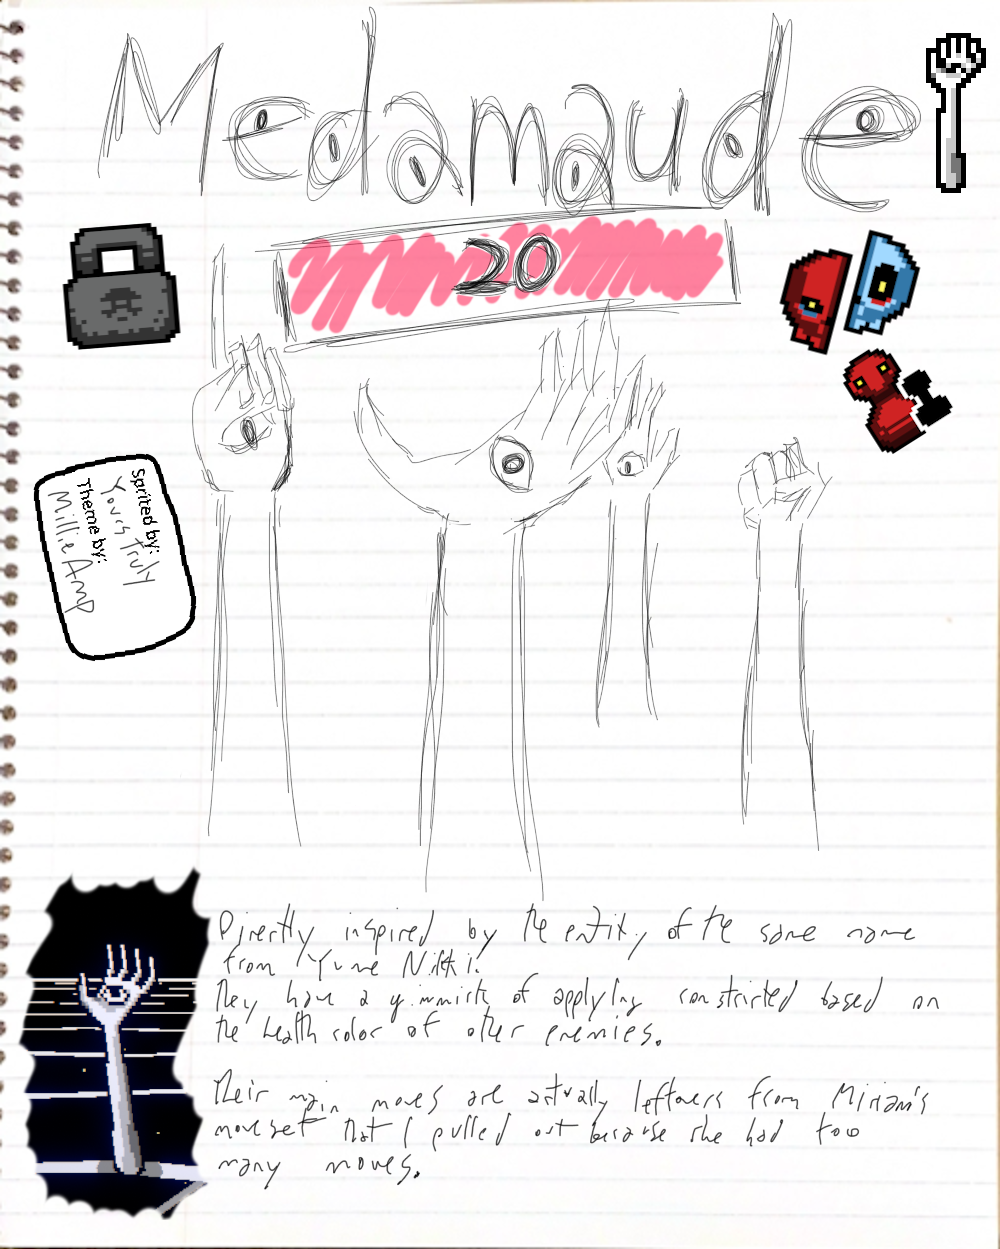 Medamaude
20
Sprited by:
Yours truly
Theme by:
Millie Amp
Directly inspired by the entity of the same name
from Yume Nikki.
They have a gimmick of applying constricted based on
the health color of other enemies.
Their main moves are actually leftovers from Miriam's
moveset that I pulled out because she had too
many moves.